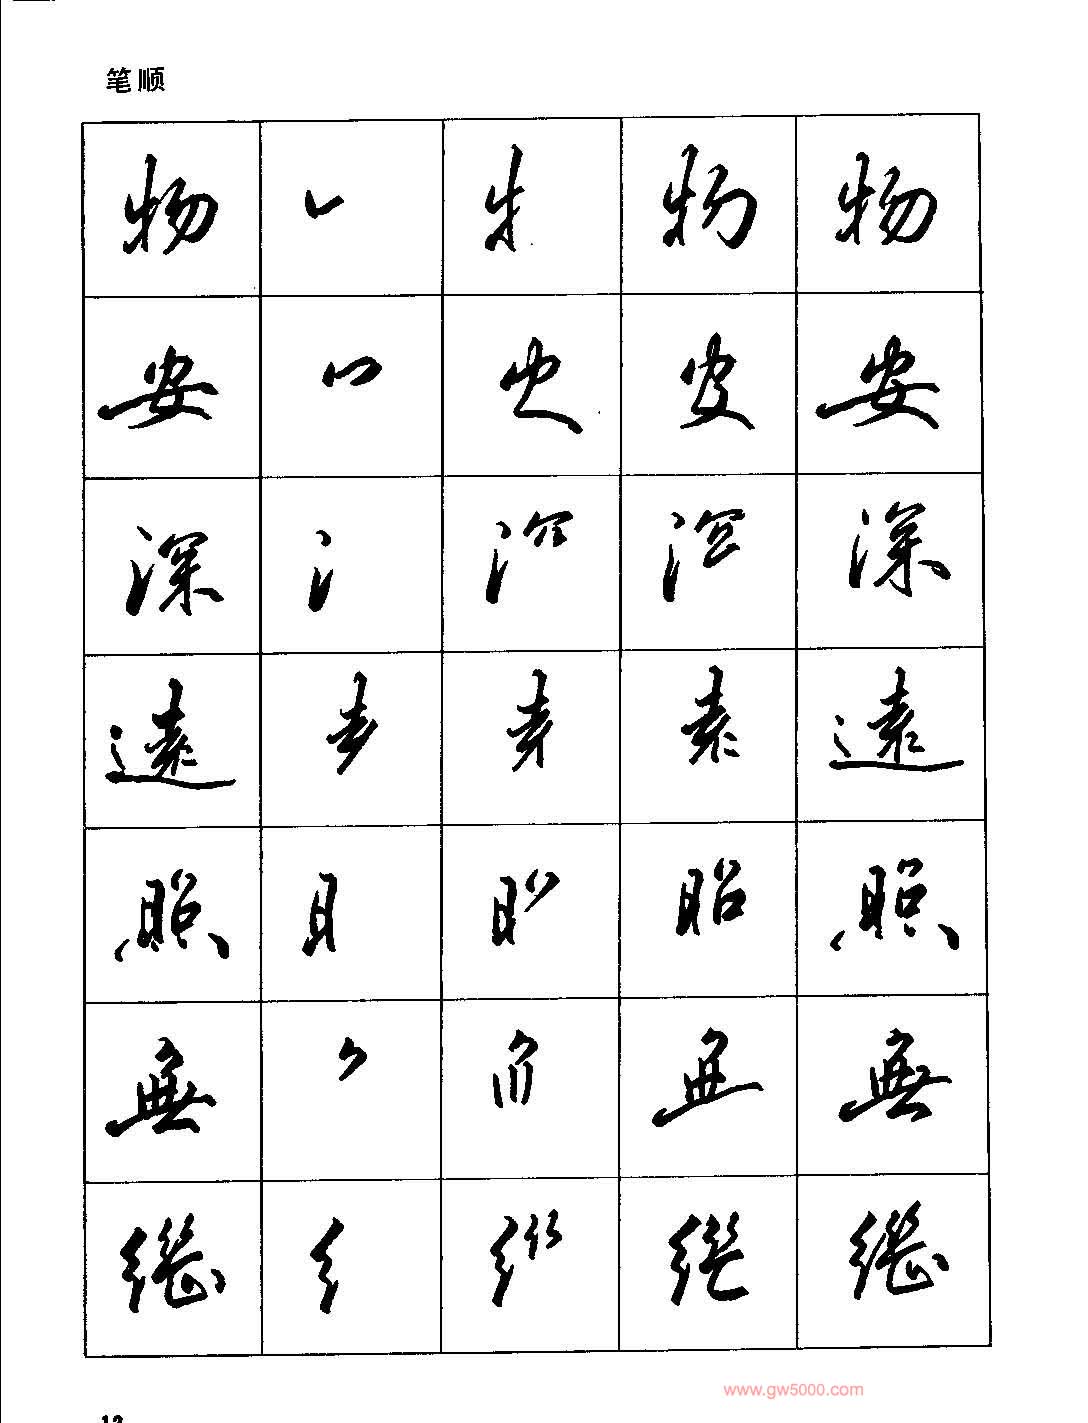 笔顺
物 物
安 安
深 深
遠 遠
照 照
無 無
www.gw5000.com